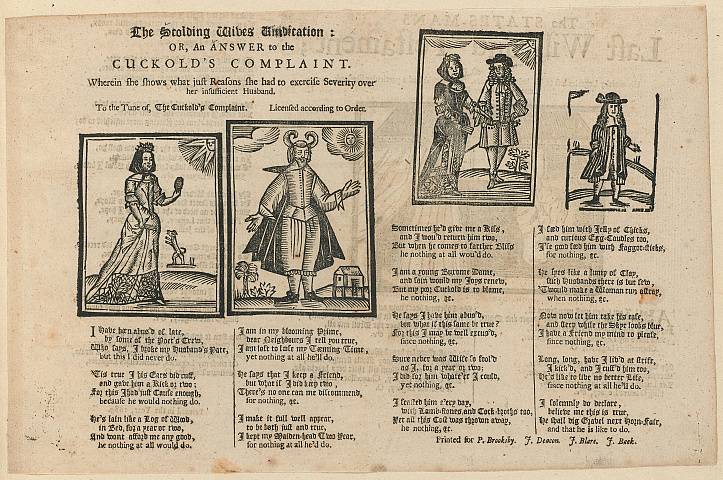 The Scolding Wives Vindication:
OR, An ANSWER to the
CUCKOLD'S COMPLAINT.
Wherein she shows what just Reasons she had to exercise Severity over
her insufficient Husband.
To the Tune of, The Cuckold's Complaint. Licensed according to Order.
I Have been abus'd of late,
by some of the Poet's Crew,
Who says, I broke my Husband's Pate,
but this I did never do.
'Tis true I his Ears did cuff,
and gave him a Kick or two:
For this I had just Cause enough,
because he would nothing do.
He's lain like a Log of Wood,
in Bed, for a year or two,
And wont afford me any good,
he nothing at all would do.
I am in my blooming Prime,
dear Neighbours I tell you true,
I am loth to lose my Teeming Time,
yet nothing at all he'll do.
He says that I keep a Friend,
but what if I did keep two,
There's no one can me discommend,
for nothing, &c.
I make it full well appear,
to be both just and true,
I kept my Maiden-head Two Year,
for nothing at all he'd do.
Sometimes he'd give me a Kiss,
and I wou'd return him two,
But when he comes to farther Bliss
he nothing at all wou'd do.
I am a young Buxome Dame,
and fain would my Joys renew,
But my poor Cuckold is to blame,
he nothing, &c.
He says I have him abus'd,
but what if this same be true?
For this I may be well excus'd,
since nothing, &c.
Sure never was Wife so fool'd
as I, for a year or two:
I did for him whate'er I could,
yet nothing, &c.
I feasted him e'ery day,
with Lamb-stones, and Cock-broths too,
Yet all this Cost was thrown away,
he nothing, &c.
I feed him with Jelly of Chicks,
and curious Egg-Caudles too,
I'le feed him with Faggot-sticks,
for nothing, &c.
He lyes like a lump of Clay,
such Husbands there is but few,
'Twould make a Woman run astray,
when nothing, &c.
Now now let him take his ease,
and sleep while the Skye looks blue,
I have a Friend my mind to please,
since nothing, &c.
Long, long, have I liv'd at strife,
I kick'd, and I cuff'd him too,
He's like to live no better Life,
since nothing at all he'll do.
I solemnly do declare,
believe me this is true,
He shall dig Gravel next Horn-Fair,
and that he is like to do.
Printed for P. Brooksby. J. Deacon. J. Blare. J. Back.